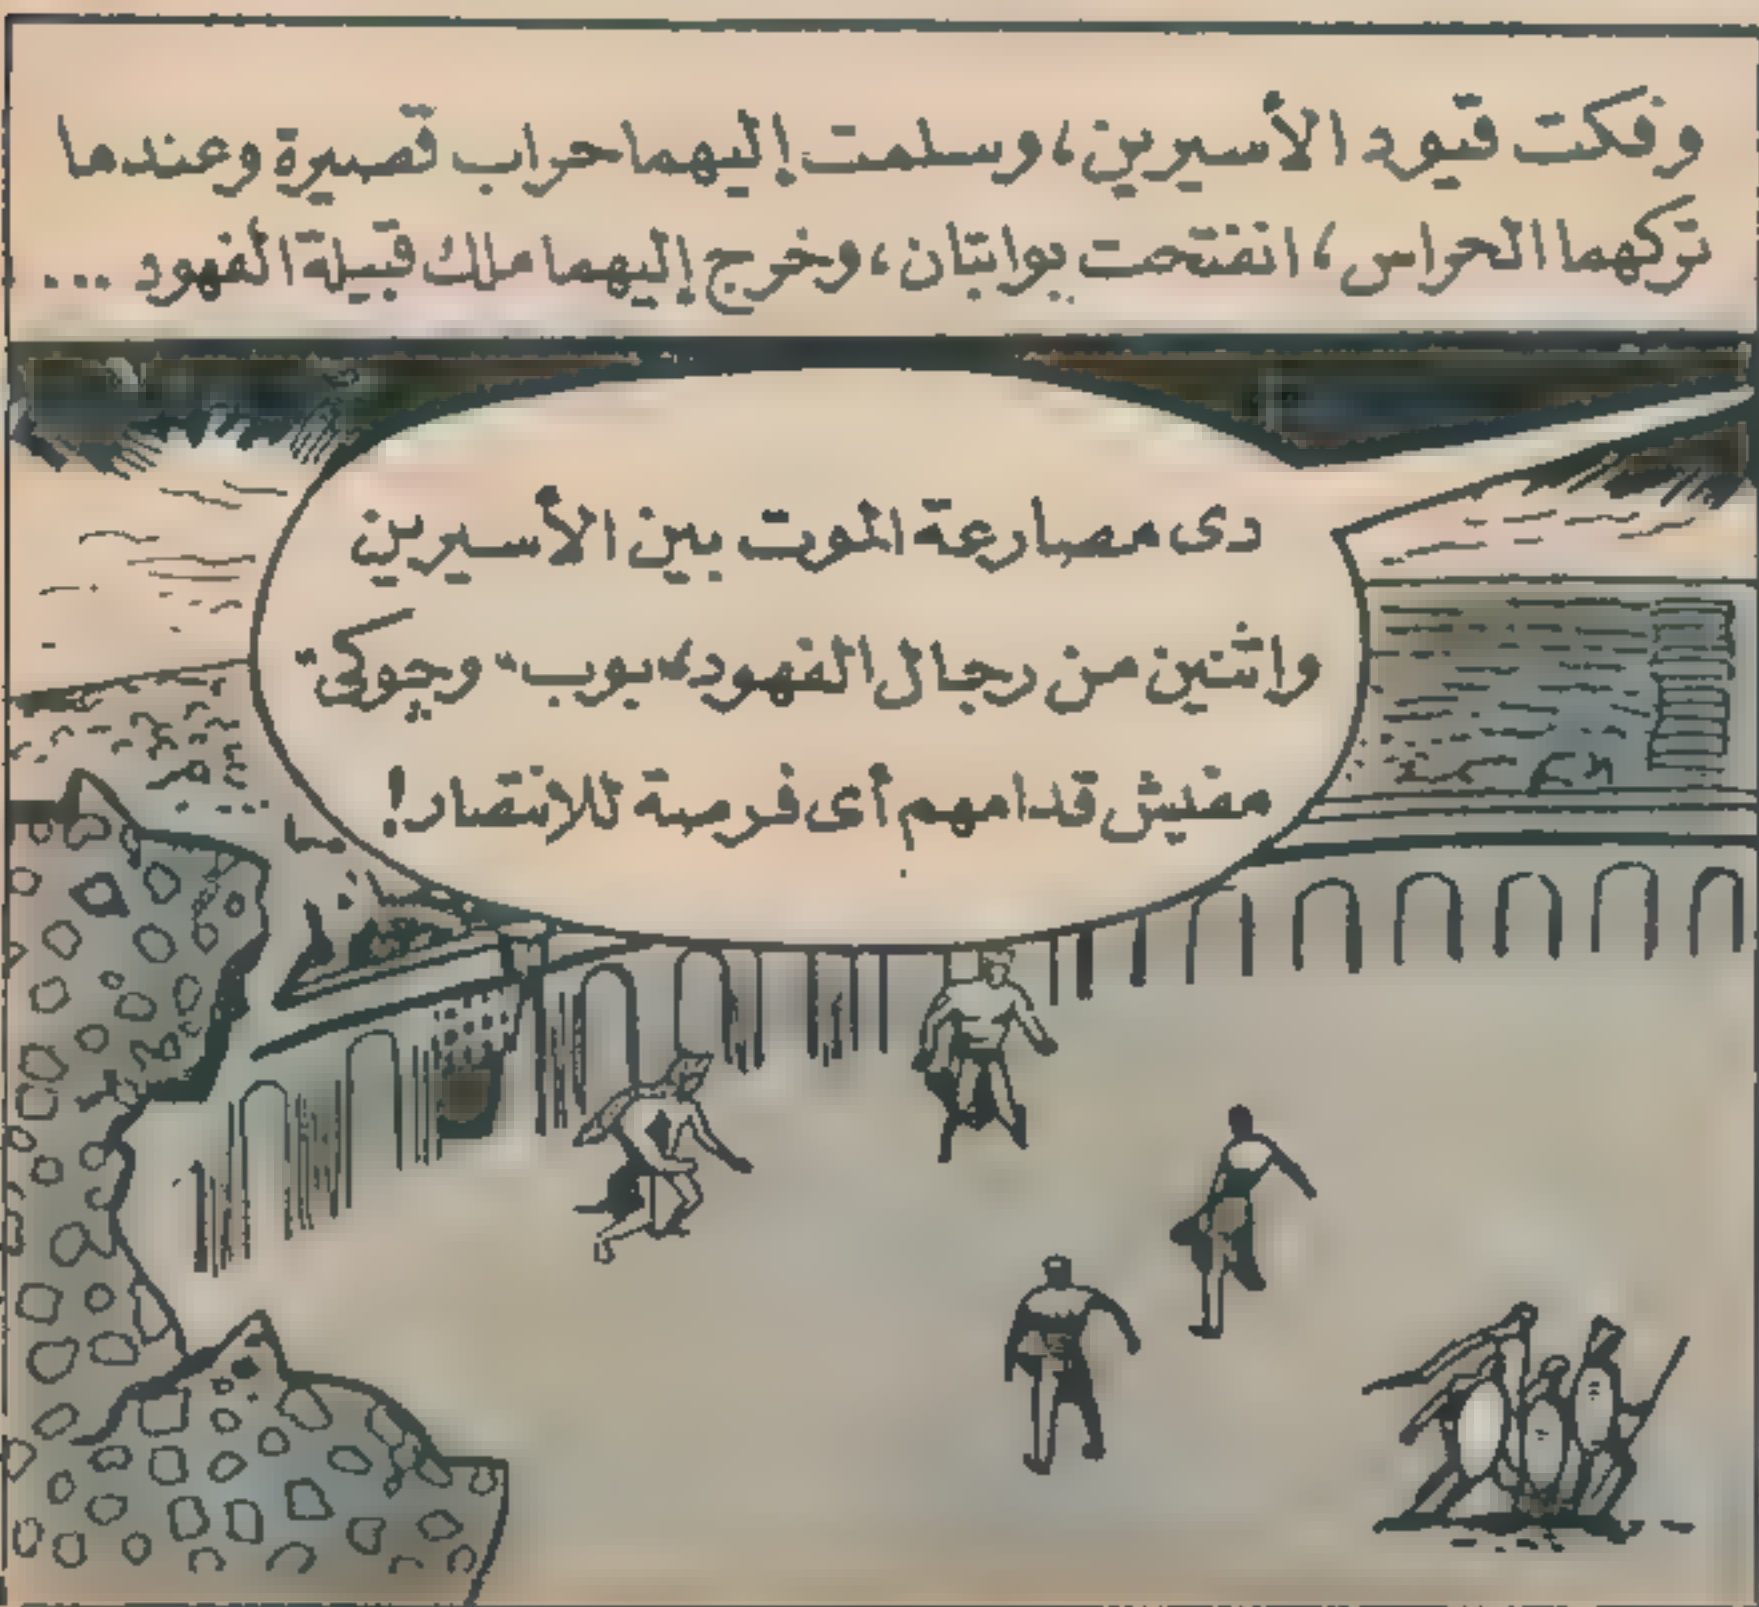 وفكت قيود الأسيرين، وسلمت إليهما حراب قصيرة وعندما
تركهما الحراس، انفتحت بوابتان، وخرج إليهما ملك قبيلة الفهود ...
دى مصارعة الموت بين الأسيرين
واثنين من رجال الفهود، "بوب" وچوكى"
مفيش قدامهم أى فرصة للانتصار!